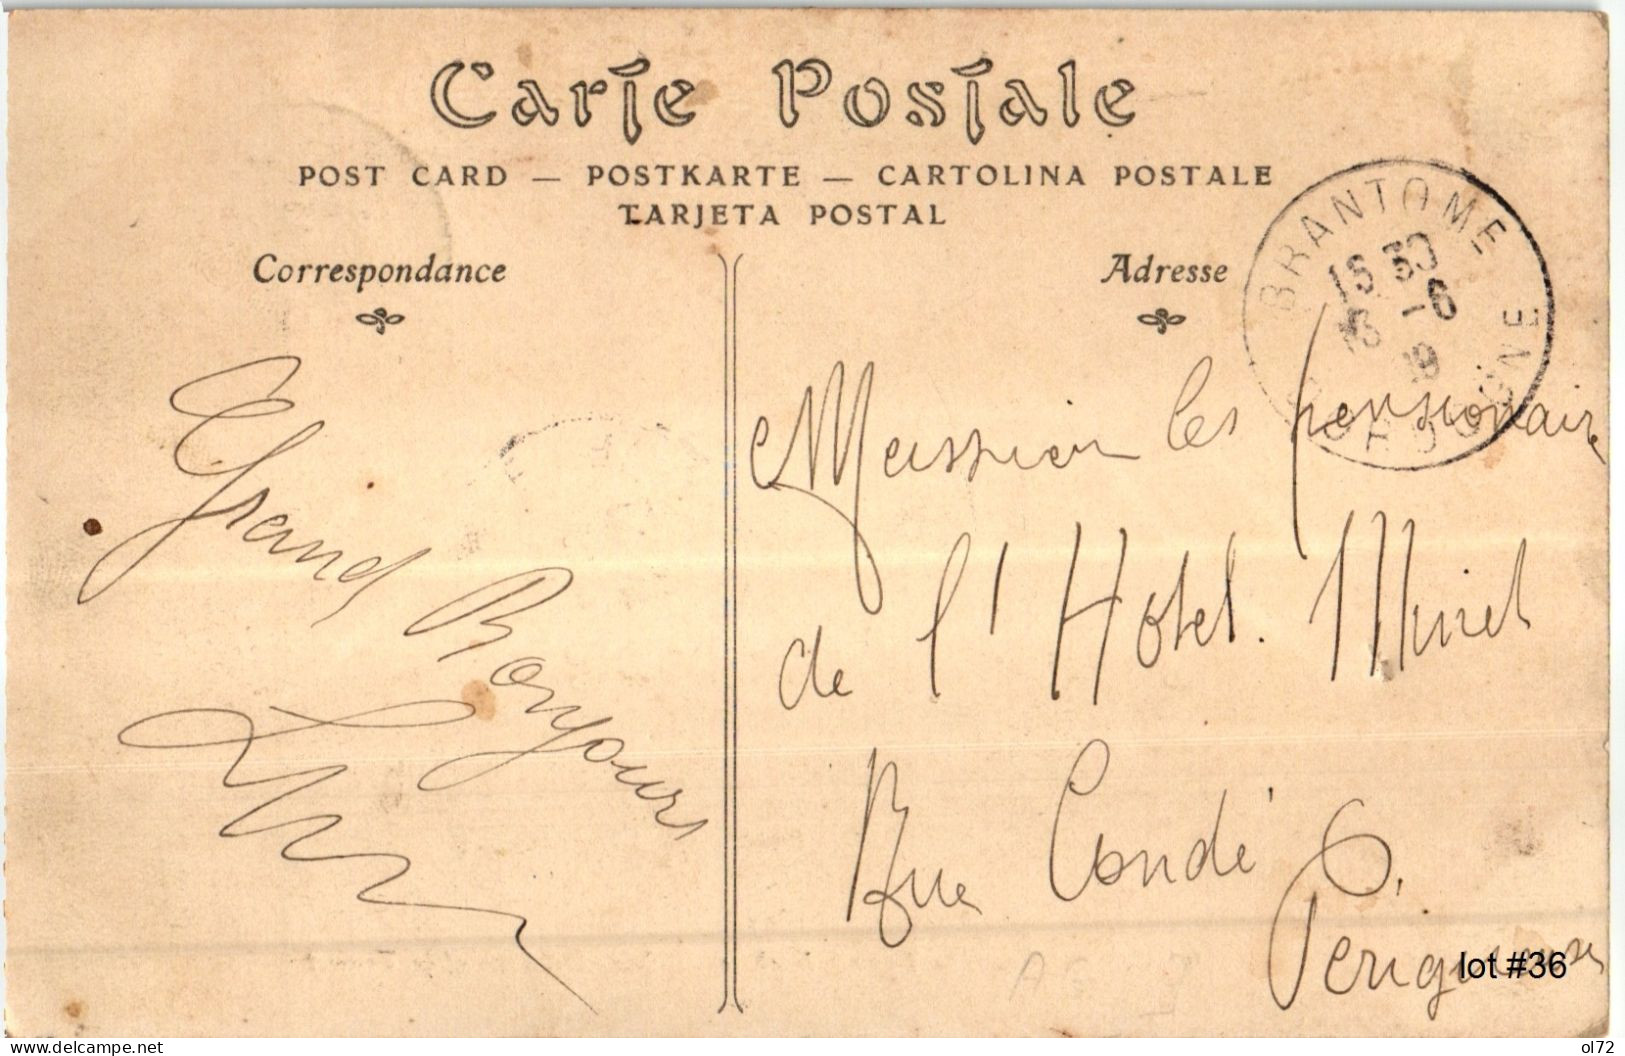 Carte Postale
POST CARD — POSTKARTE — CARTOLINA POSTALE
TARJETA POSTAL
Correspondance
Adresse
BRANTOME
DORDOGNE
-6
Grand
Bonjours
Messieur les pensionaire
de l'Hotel. Muret
Rue Condé 6.
Perigueux
lot #36
www.delcampe.net
ol72